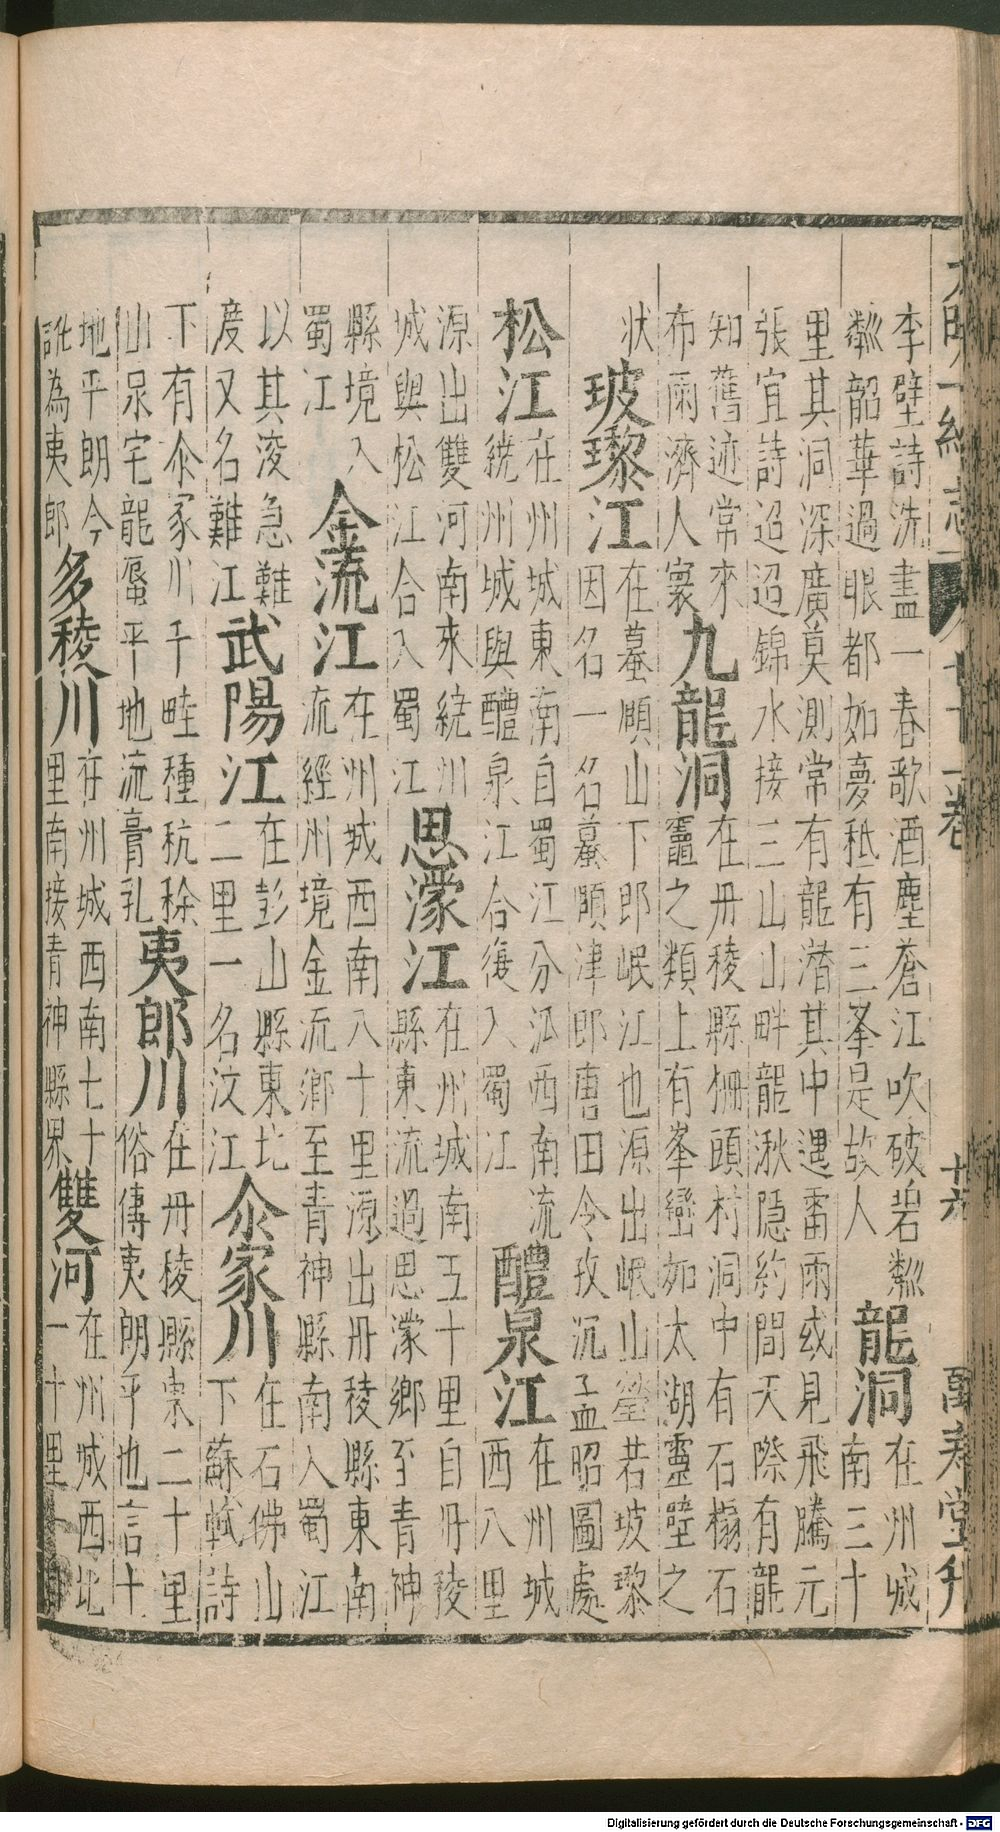 大明一統志 七十一卷 十六 萬壽堂刋
李壁詩洗盡一春歌酒塵蒼江吹破碧粼
粼韶華過眼都如夢秪有三峯是故人
龍洞
在州城
南三十
里其洞深廣莫測常有龍潛其中遇雷雨或見飛騰元
張宜詩迢迢錦水接三山山畔龍湫隠約間天際有龍
知舊迹常來
布雨濟人寰
九龍洞
在丹稜縣柵頭村洞中有石榻石
之類上有峯巒如太湖靈壁之
狀
玻瓈江
在蟇頤山下郎岷江也源出岷山瑩若玻瓈
因名一名蟇頤津郎唐田令孜沉孟昭圖處
松江
在州城東南自蜀江分派西南流
繞州城與醴泉江合復入蜀江
醴泉江
在州城
西八里
源出雙河南來繞州
城與松江合入蜀江
思濛江
在州城南五十里自丹稜
縣東流過思濛鄉至青神
縣境入
蜀江
金流江
在州城西南八十里源出丹稜縣東南
流經州境金流鄉至青神縣南入蜀江
以其淩急難
度又名難江
武陽江
在彭山縣東北
二里一名汶江
汆家川
在石佛山
下蘇軾詩
下有汆家川千畦種秔稌
山泉宅龍蜃平地流膏乳
夷郎川
在丹稜縣東二十里
俗傳夷朗平也言十
地平朗今
訛為夷郎
多稜川
在州城西南七十
里南接青神縣界
雙河
在州城西北
一十里一
Digitalisierung gefördert durch die Deutsche Forschungsgemeinschaft - DFG